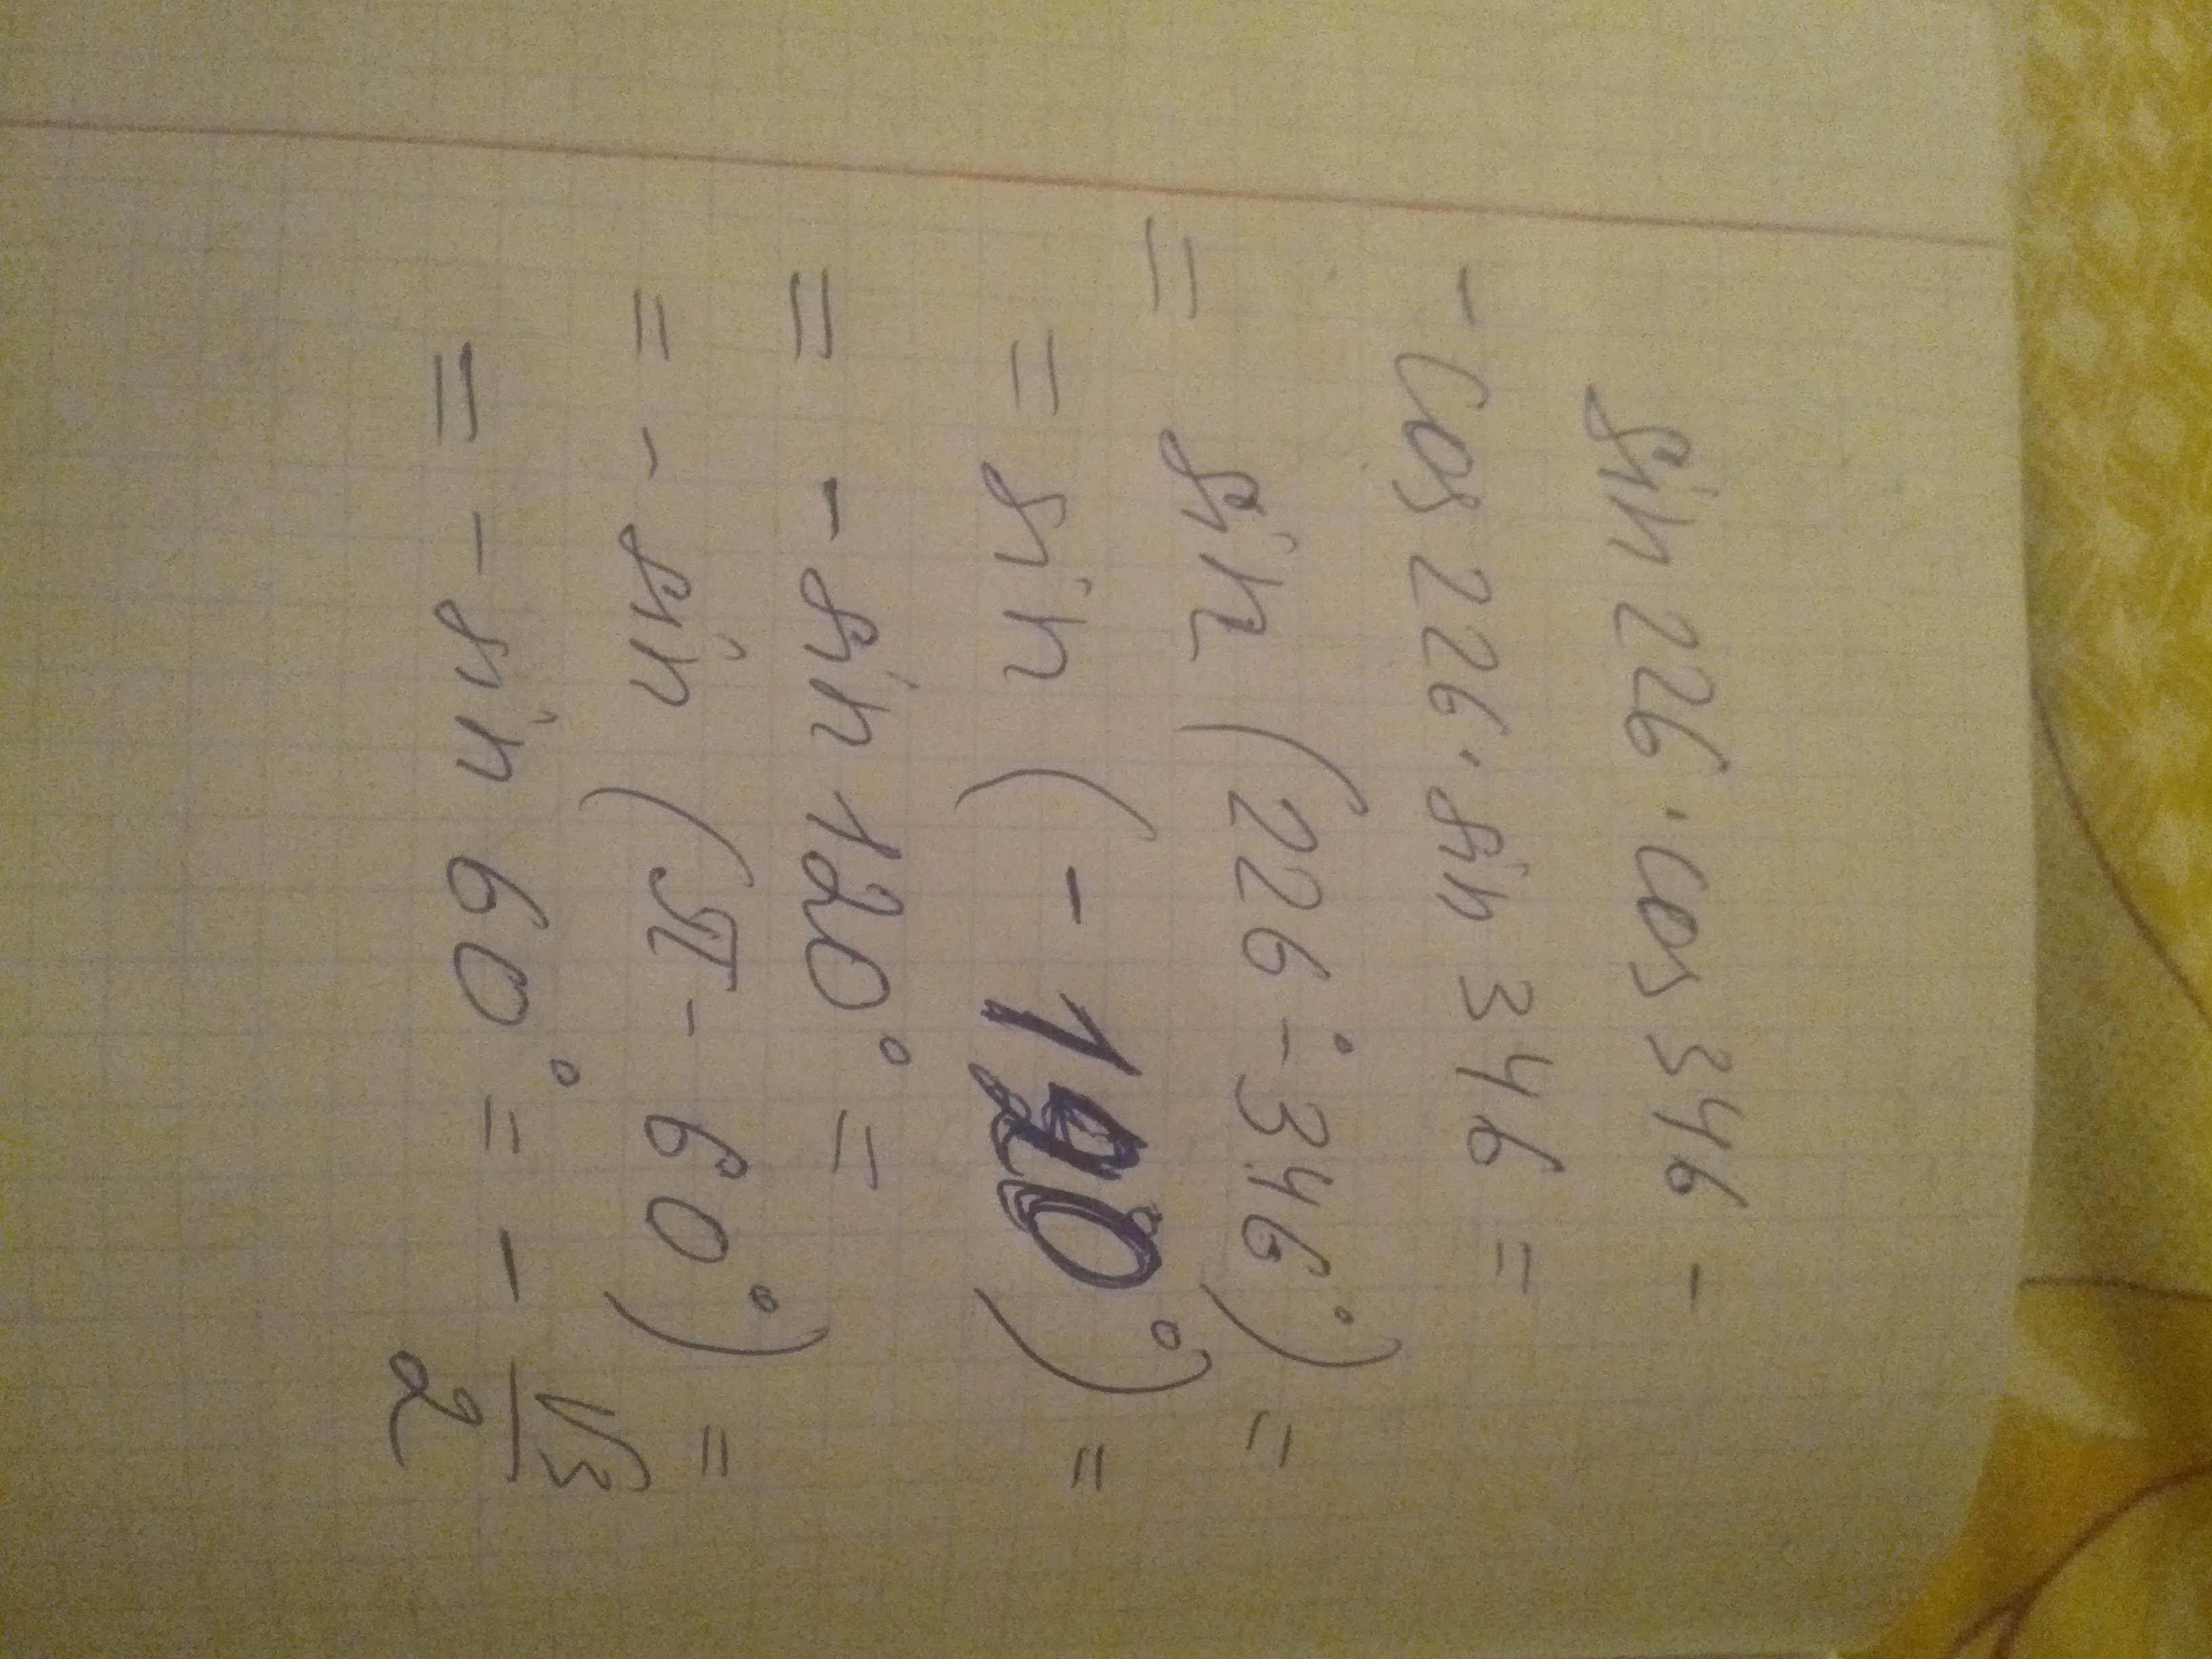 sin 226 · cos 346 -
- cos 226 · sin 346 =
= sin (226° - 346°) =
= sin (- 120°) =
= - sin 120° =
= - sin (π - 60°) =
= - sin 60° = - √3/2